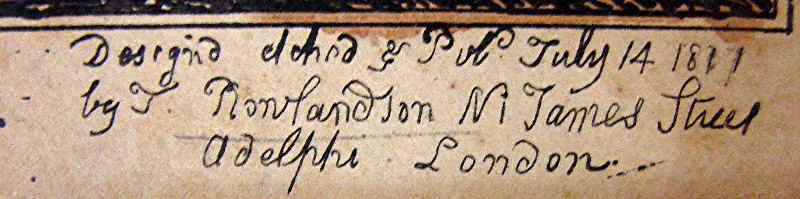 Design'd etch'd & Pub.d July 14 1811
by T Rowlandson N1 James Street
Adelphi London.